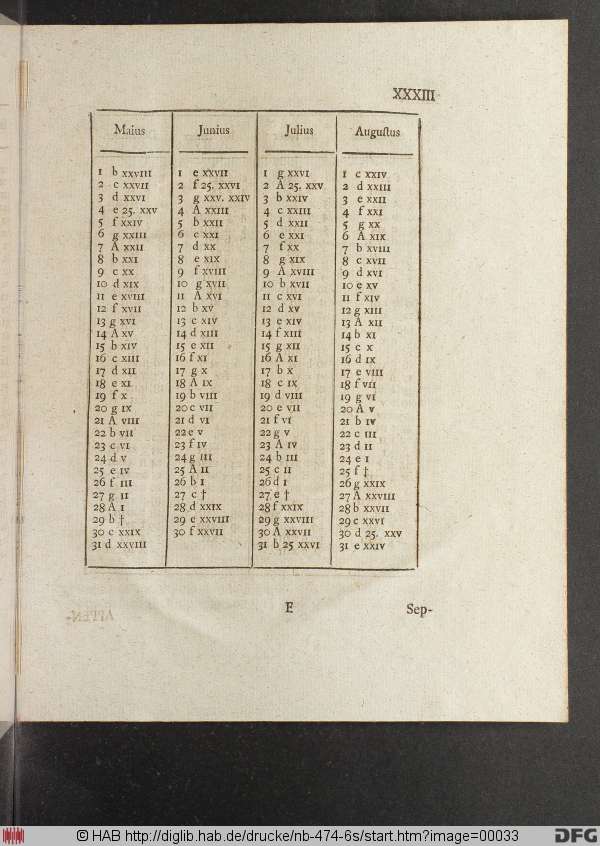 XXXIII
Maius
1 b xxvIII
2 c xxvII
3 d xxvI
4 e 25. xxv
5 f xxIv
6 g xxIII
7 A xxII
8 b xxI
9 c xx
10 d xIx
11 e xvIII
12 f xvII
13 g xvI
14 A xv
15 b xIv
16 c xIII
17 d xII
18 e xI
19 f x
20 g Ix
21 A vIII
22 b vII
23 c vI
24 d v
25 e Iv
26 f III
27 g II
28 A I
29 b †
30 c xxIx
31 d xxvIII
Junius
1 e xxvII
2 f 25. xxvI
3 g xxv. xxIv
4 A xxIII
5 b xxII
6 c xxI
7 d xx
8 e xIx
9 f xvIII
10 g xvII
11 A xvI
12 b xv
13 c xIv
14 d xIII
15 e xII
16 f xI
17 g x
18 A Ix
19 b vIII
20 c vII
21 d vI
22 e v
23 f Iv
24 g III
25 A II
26 b I
27 c †
28 d xxIx
29 e xxvIII
30 f xxvII
Julius
1 g xxvI
2 A 25. xxv
3 b xxIv
4 c xxIII
5 d xxII
6 e xxI
7 f xx
8 g xIx
9 A xvIII
10 b xvII
11 c xvI
12 d xv
13 e xIv
14 f xIII
15 g xII
16 A xI
17 b x
18 c Ix
19 d vIII
20 e vII
21 f vI
22 g v
23 A Iv
24 b III
25 c II
26 d I
27 e †
28 f xxIx
29 g xxvIII
30 A xxvII
31 b 25 xxvI
Auguſtus
1 c xxIv
2 d xxIII
3 e xxII
4 f xxI
5 g xx
6 A xIx
7 b xvIII
8 c xvII
9 d xvI
10 e xv
11 f xIv
12 g xIII
13 A xII
14 b xI
15 c x
16 d Ix
17 e vIII
18 f vII
19 g vI
20 A v
21 b Iv
22 c III
23 d II
24 e I
25 f †
26 g xxIx
27 A xxvIII
28 b xxvII
29 c xxvI
30 d 25. xxv
31 e xxIv
E
Sep-
© HAB http://diglib.hab.de/drucke/nb-474-6s/start.htm?image=00033
DFG